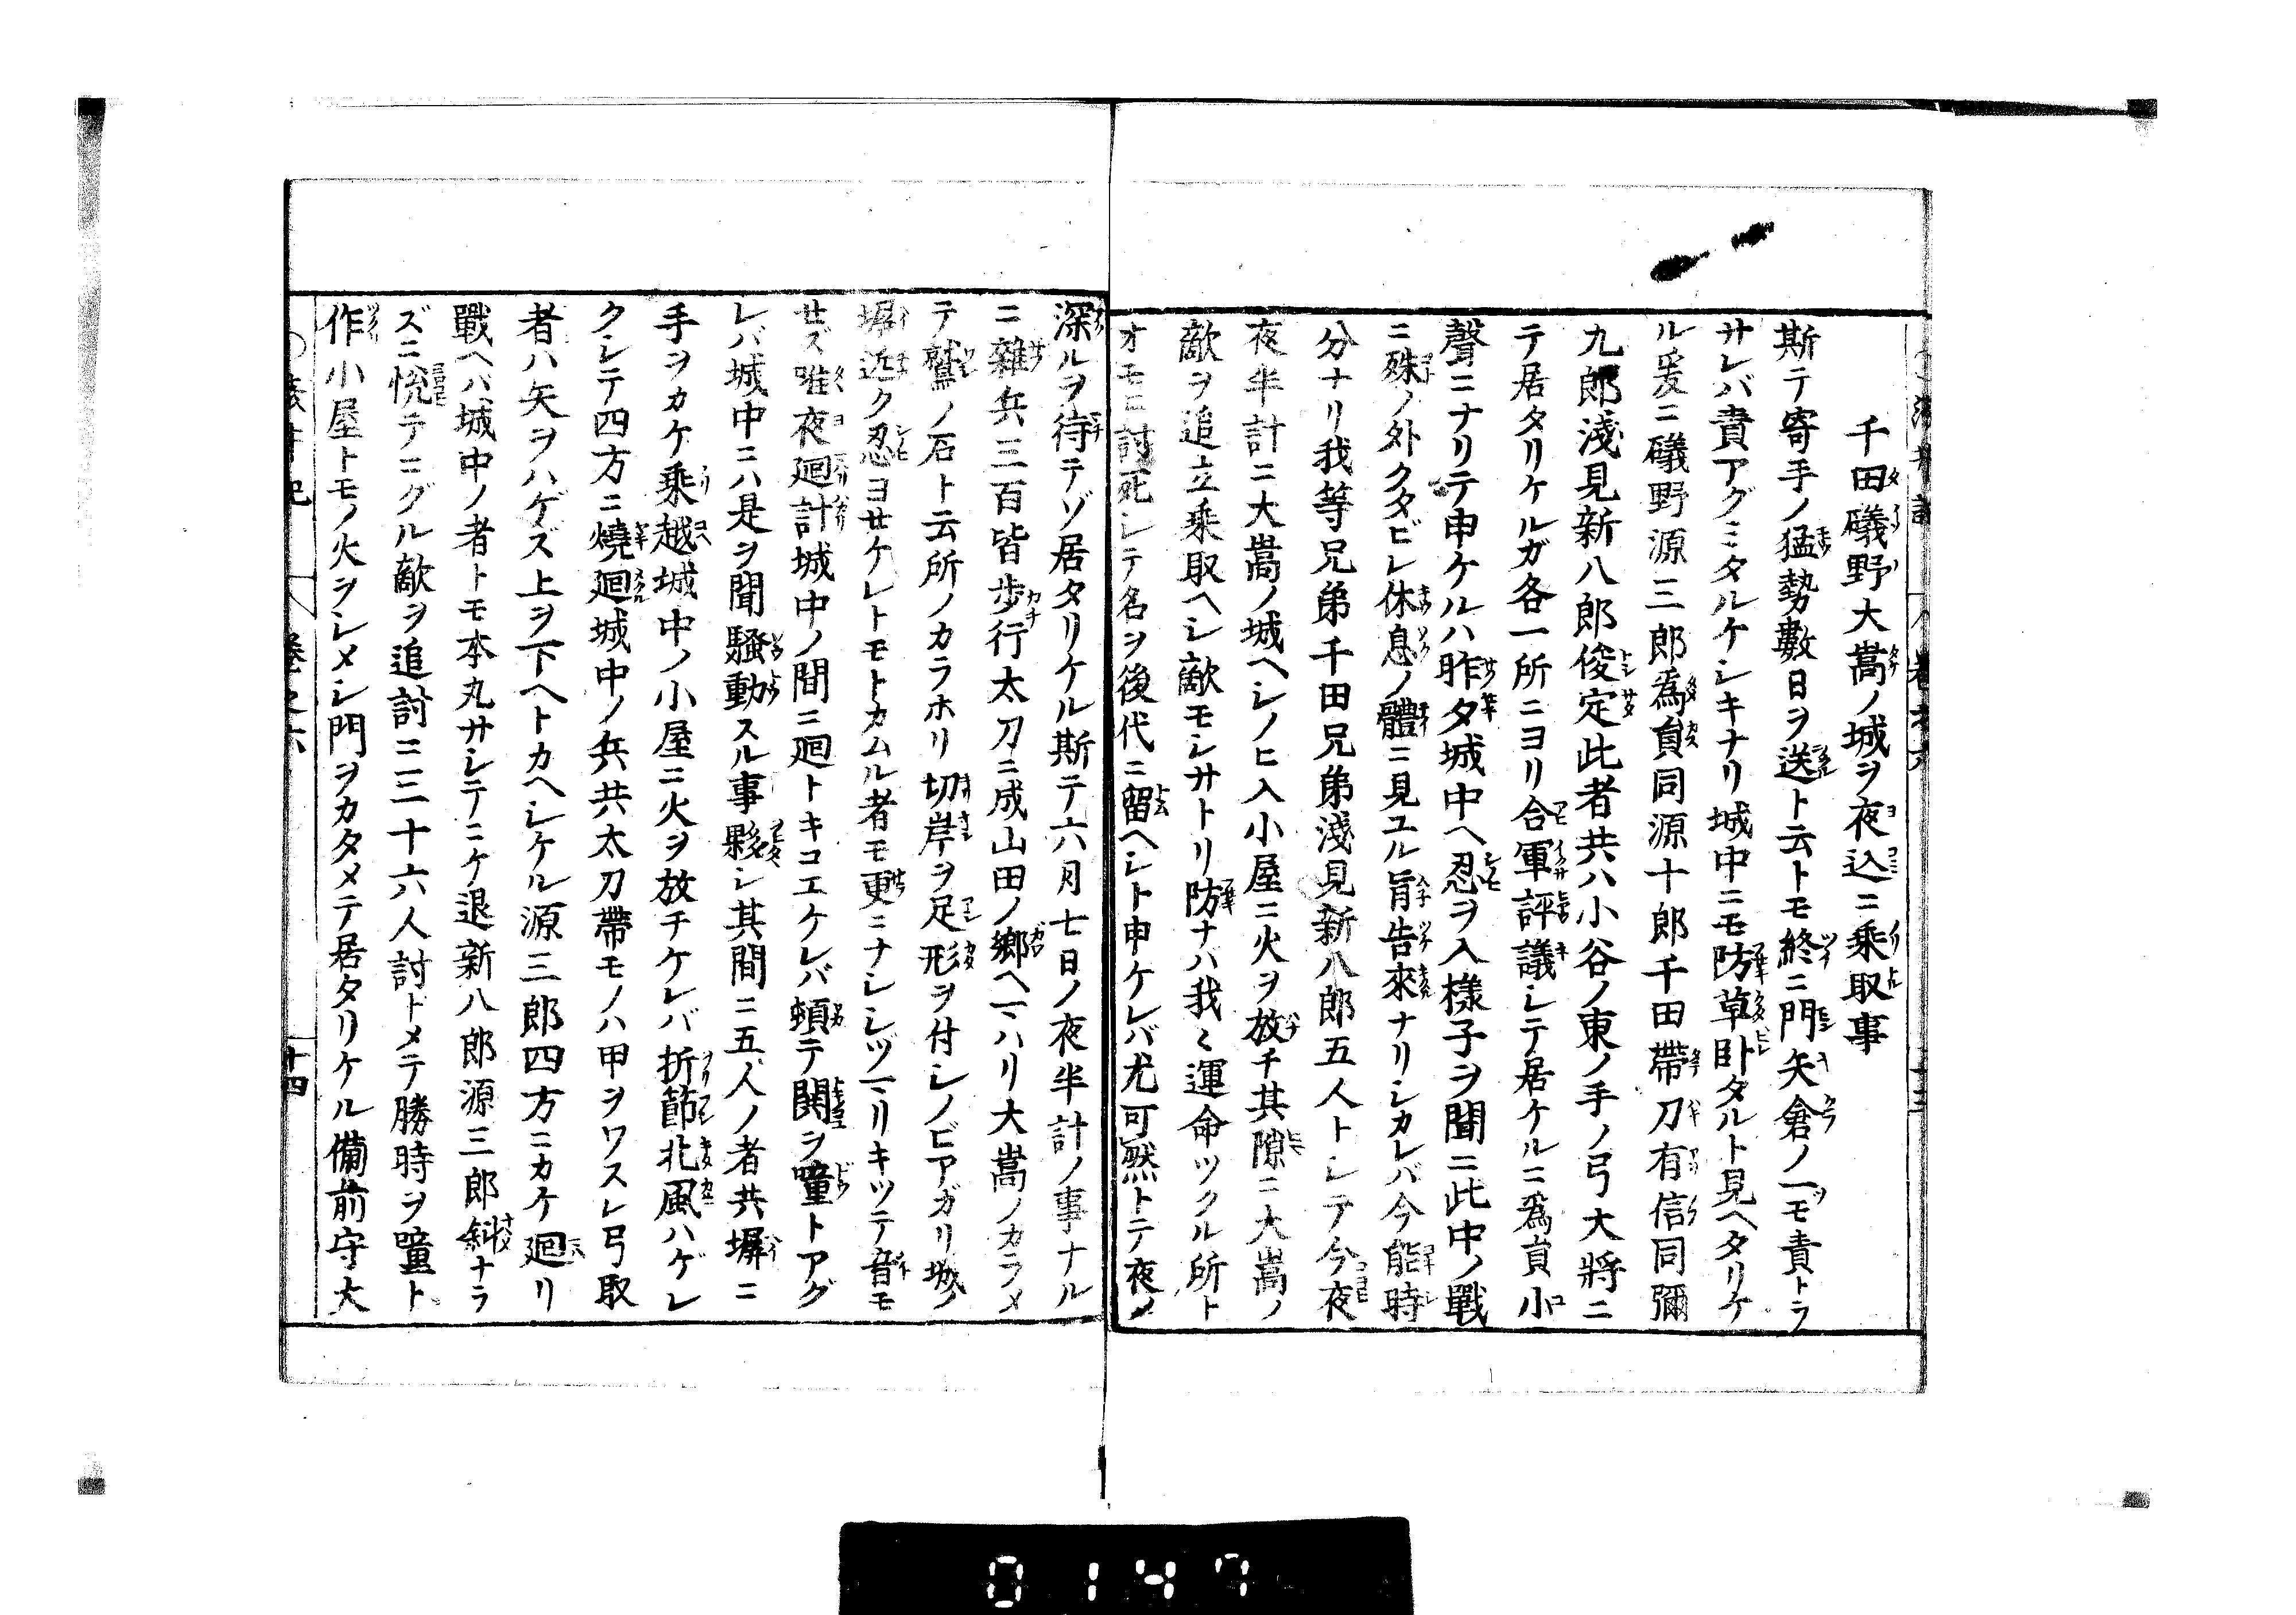 千田礒野大嵩ノ城ヲ夜込ニ乗取事
斯テ寄手ノ猛勢數日ヲ送ト云トモ終ニ門矢倉ノ一モ責トラ
サレバ責アグミタルケシキナリ城中ニモ防草臥タルト見ヘタリケ
ル爰ニ礒野源三郎為貟同源十郎千田帶刀有信同彌
九郎淺見新八郎俊定此者共ハ小谷ノ東ノ手ノ弓大將ニ
テ居タリケルガ各一所ニヨリ合軍評議シテ居ケルニ為貟小
聲ニナリテ申ケルハ昨夕城中ヘ忍ヲ入樣子ヲ聞ニ此中ノ戰
ニ殊ノ外クタビレ休息ノ體ニ見ユル旨告來ナリシカレバ今能時
分ナリ我等兄弟千田兄弟淺見新八郎五人トシテ今夜
夜半計ニ大嵩ノ城ヘシノヒ入小屋ニ火ヲ放チ其隙ニ大嵩ノ
敵ヲ追立乗取ヘシ敵モシサトリ防ナハ我々運命ツクル所ト
オモヒ討死シテ名ヲ後代ニ留ヘシト申ケレバ尤可然トテ夜ノ
深ルヲ待テゾ居タリケル斯テ六月七日ノ夜半計ノ事ナル
ニ雜兵三百皆歩行太刀ニ成山田ノ郷ヘマハリ大嵩ノカラメ
テ鷲ノ石ト云所ノカラホリ切岸ヲ足形ヲ付シノビアガリ城ノ
塀近ク忍ヨセケレトモトカムル者モ更ニナシシヅマリキツテ音モ
せズ唯夜廻計城中ノ間ニ廻トキコエケレバ頓テ鬨ヲ噇トアグ
レバ城中ニハ是ヲ聞騒動スル事夥シ其間ニ五人ノ者共塀ニ
手ヲカケ乗越城中ノ小屋ニ火ヲ放チケレバ折節北風ハゲシ
クシテ四方ニ燒廻城中ノ兵共太刀帶モノハ甲ヲワスレ弓取
者ハ矢ヲハゲズ上ヲ下ヘトカヘシケル源三郎四方ニカケ廻リ
戰ヘハ城中ノ者トモ本丸サシテニケ退新八郎源三郎斜ナラ
ズニ悅テニグル敵ヲ追討ニ三十六人討トメテ勝時ヲ噇ト
作小屋トモノ火ヲシメシ門ヲカタメテ居タリケル備前守大
巻之六
十四
0147